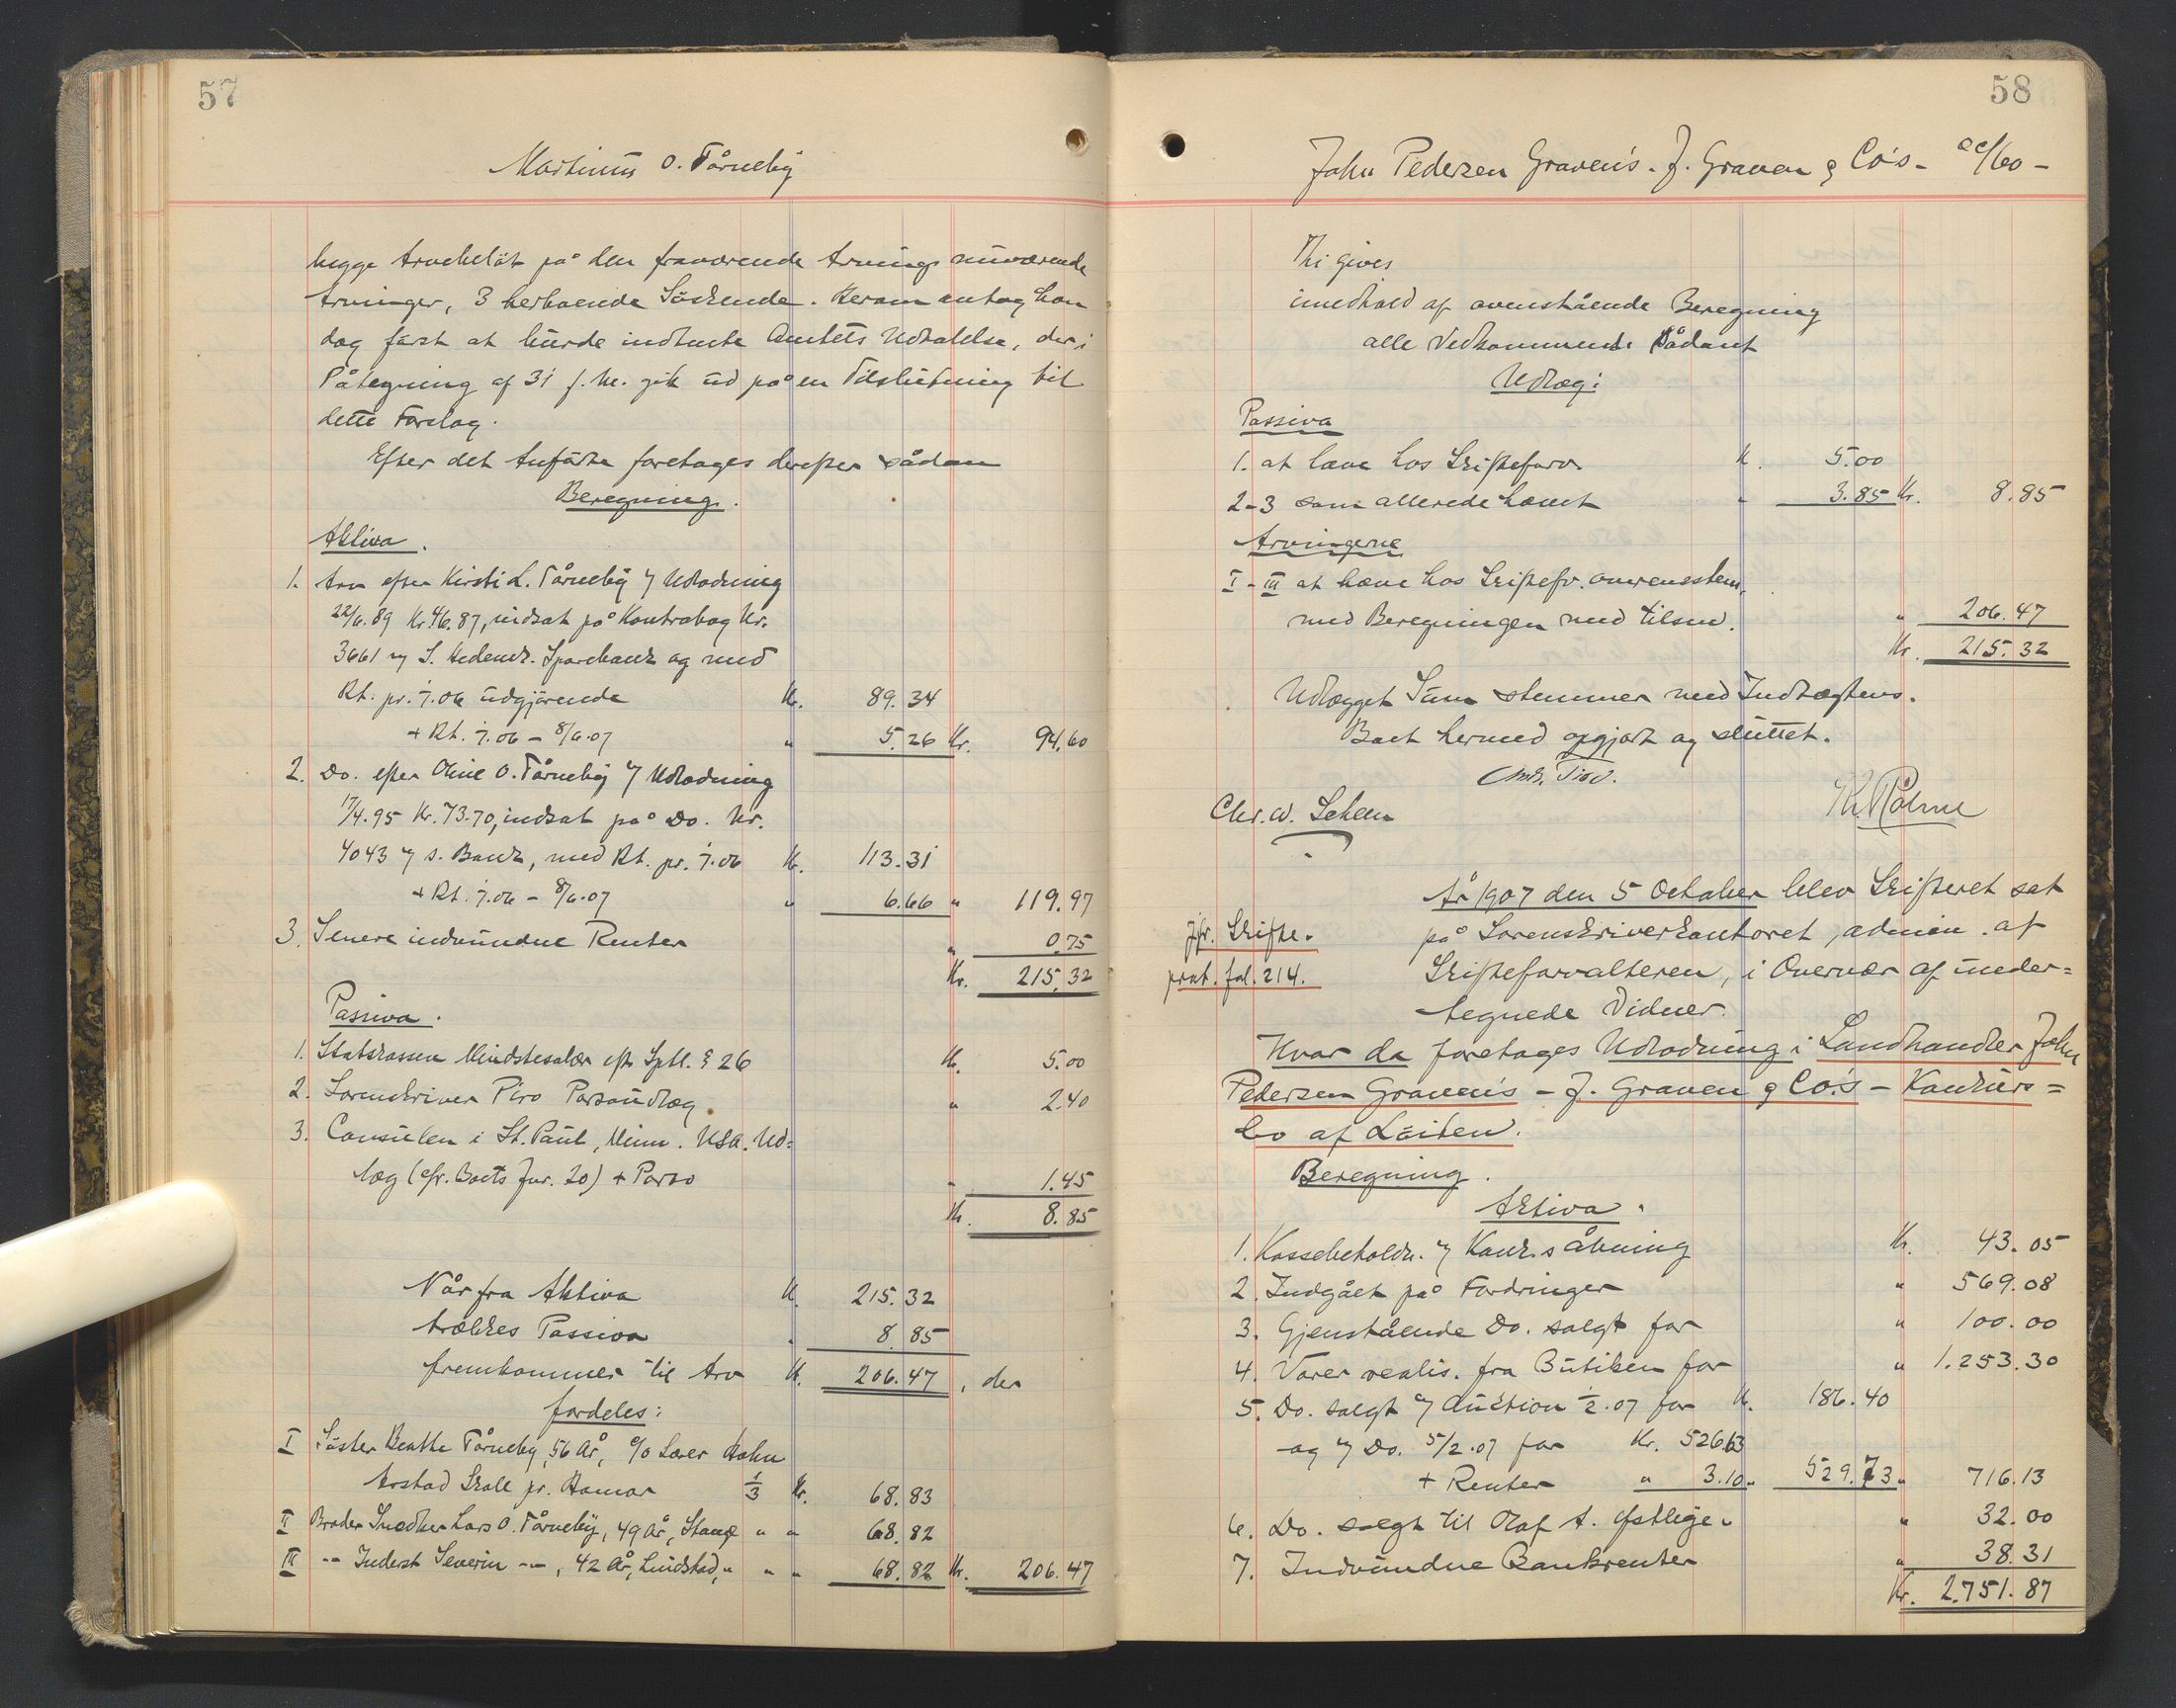 57
Martinus O. Tårneby
begge Arvebeløb på den fraværende Arvings nuværende
Arvinger, 3 herboende Söskende. Herom antog han
dog først at burde indhente Amtets Udtalelse, der i
Påtegning af 31 f. M. gik ud på en Tilslutning til
dette Forslag.
Efter det Anførte foretages derefter sådan
Beregning.
Aktiva.
1. Arv efter Kirsti L. Tårneby v/ Udlodning
22/6.89 Kr. 46.87, indsat på Kontrabog Nr.
3661 v/ S. Hedemk. Sparebank og med
Rt. pr. 1/1.06 udgjørende Kr. 89.34
+ Rt. 1/1.06 – 8/6.07 " 5.26 Kr. 94.60
2. Do. efter Oline O. Tårneby v/ Udlodning
17/4.95 Kr. 73.70, indsat på Do. Nr.
4043 v/ s. Bank, med Rt. pr. 1/1.06 Kr. 113.31
+ Rt. 1/1.06 – 8/6.07 " 6.66 " 119.97
3. Senere indvundne Renter " 0.75
Kr. 215.32
Passiva.
1. Statskassen Mindstesalær eft. Sptl. § 26 Kr. 5.00
2. Sorenskriver Piro Portoudlæg " 2.40
3. Consulen i St. Paul, Minn. USA. Ud=
læg (cfr. Boets Jnr. 20) + Porto " 1.45
Kr. 8.85
Når fra Aktiva Kr. 215.32
trækkes Passiva " 8.85
fremkommer til Arv Kr. 206.47, der
fordeles:
I Söster Beathe Tårneby, 56 År, c/o Lærer Hohn
Arstad Skole pr. Hamar 1/3 Kr. 68.83
II Broder Snedker Lars O. Tårneby, 49 År, Stange " " 68.82
III -"- Inderst Severin -"-, 42 År, Lindstad, " " " 68.82 Kr. 206.47
58
John Pedersen Graven's - J. Graven & Co's -
Thi gives
imedhold af ovenstående Beregning
alle Vedkommende Sådant
Udlæg:
Passiva
1. at hæve hos Skifteforv. Kr. 5.00
2-3 som allerede hævet " 3.85 Kr. 8.85
Arvingerne
I – III at hæve hos Skiftefv. overensstem.
med Beregningen med tilsm. " 206.47
Kr. 215.32
Udlægget Sum stemmer med Indtægtens.
Boet hermed opgjort og sluttet.
Chr. W. Scheen
År 1907 den 5 Oktober blev Skifteret sat
på Sorenskriverkontoret, admin. af
Skifteforvalteren, i Overvær af under=
tegnede Vidner.
Jfr. Skifte-
prot. fol. 214.
Hvor da foretages Udlodning i Landhandler John
Pedersen Graven's – J. Graven & Co.'s – Konkurs=
bo af Löiten.
Beregning.
Aktiva.
1. Kassebeholdn. v/ Konk.s åbning Kr. 43.05
2. Indgået på Fordringer " 569.08
3. Gjenstående Do. solgt for " 100.00
4. Varer realis. fra Butiken for " 1.253.30
5. Do. solgt v/ Auktion 1/2.07 for Kr. 186.40
og v/ Do. 5/2.07 for Kr. 526.63
+ Renter " 3.10 " 529.73 " 716.13
6. Do. solgt til Olaf A. " 32.00
7. Indvundne Bankrenter " 38.31
Kr. 2.751.87